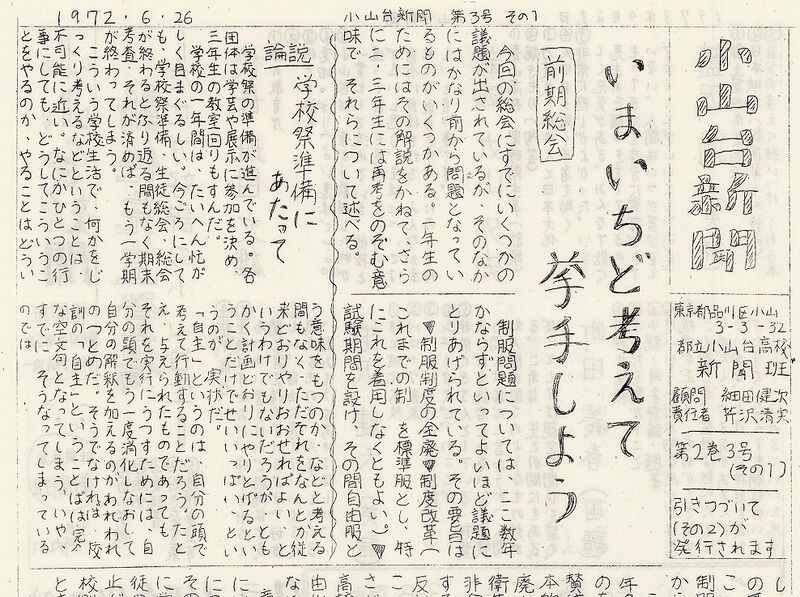 1972.6.26
小山台新聞 第3号 その1
小山台新聞
東京都品川区小山
3-3-32
都立小山台高校
新聞班
顧問 細田健次
責任者 芹沢清実
第2巻3号
(その1)
引きつづいて
(その2)が
発行されます
いまいちど考えて
挙手しよう
前期総会
今回の総会にすでにいくつかの
議題が出されているが、そのなか
にはかなり前から問題となってい
るものがいくつかある。一年生の
ためにはその解説をかねて、さら
に二、三年生には再考をのぞむ意
味で、それらについて述べる。
制服問題については、ここ数年
かならずといってよいほど議題に
とりあげられている。その要旨は
▼制服制度の全廃▼制度改革(
これまでの制 を標準服とし、特
にこれを着用しなくともよい。)▼
試験期間を設け、その間自由服と
論説 学校祭準備に
あたって
学校祭の準備が進んでいる。各
団体は学芸や展示に参加を決め、
三年生の教室回りもすんだ。
学校の一年間は、たいへん忙が
しく目まぐるしい。今ごろにして
も、学校祭準備、生徒総会、総会
が終わるとふり返る間もなく期末
考査、それが済めば、もう一学期
が終わってしまう。
こういう学校生活で、何かをじ
っくり考えるなどということは、
不可能に近い。なにかひとつの行
事にしても、どうしてこういうこ
とをやるのか、やることはどうい
う意味をもつのか、などと考える
間もなく、ただそれをなんとか従
来どおりやりおおせればよい、と
いうわけでもないだろうが、とも
かく計画どおりにやりとげるとい
うことだけでせいいっぱい、とい
うのが、実状だ。
「自主」というのは、自分の頭で
考えて行動することだろう。たと
え、与えられたものであっても、
それを実行にうつすためには、自
分の頭でもう一度消化しなおして
自分の解釈を加えるのがわれわれ
のつとめだ。そうでなければ、校
訓の「自主」ということばは完全
な空文句となってしまう。いや、
すでに、そうなってしまっている
のでは